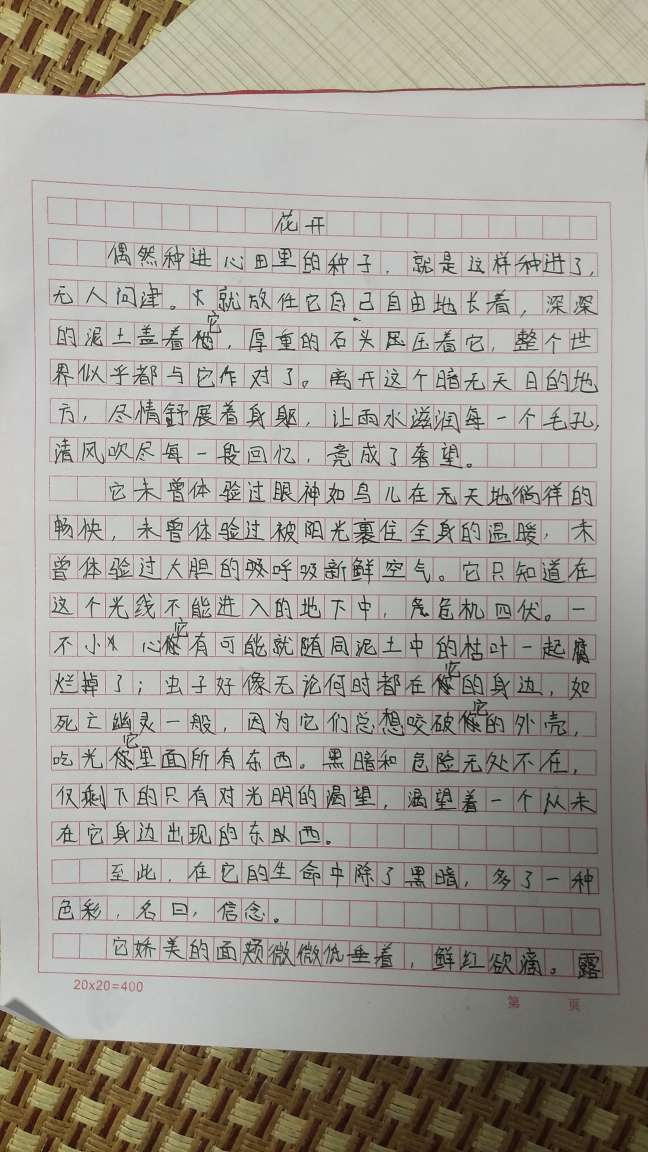 花开
偶然种进心田里的种子，就是这样种进了，
无人问津。就放任它自己自由地长着，深深
的泥土盖着它，厚重的石头压压着它，整个世
界似乎都与它作对了。离开这个暗无天日的地
方，尽情舒展着身躯，让雨水滋润每一个毛孔，
清风吹尽每一段回忆，竟成了奢望。
它未曾体验过眼神如鸟儿在无天地徜徉的
畅快，未曾体验过被阳光裹住全身的温暖，未
曾体验过大胆的吸呼吸新鲜空气。它只知道在
这个光线不能进入的地下中，危机四伏。一
不小心它有可能就随同泥土中的枯叶一起腐
烂掉了；虫子好像无论何时都在它的身边，如
死亡幽灵一般，因为它们总想咬破它的外壳，
吃光它里面所有东西。黑暗和危险无处不在，
仅剩下的只有对光明的渴望，渴望着一个从未
在它身边出现的东西。
至此，在它的生命中除了黑暗，多了一种
色彩，名曰，信念。
它娇美的面颊微微低垂着，鲜红欲滴。露
20x20=400
第 页